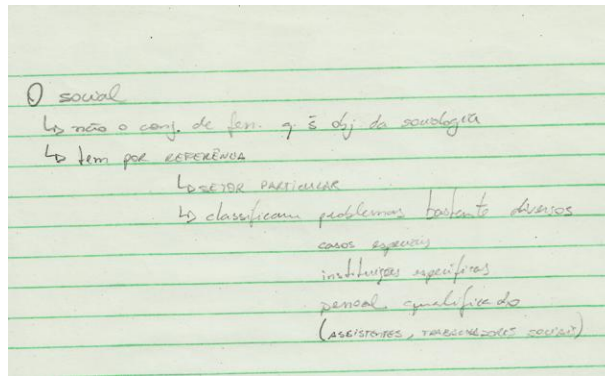 O social
↳ não o conj. de fen. q. é obj da sociologia
↳ tem por REFERÊNCIA
↳ SETOR PARTICULAR
↳ classificam problemas bastante diversos
casos especiais
instituições específicas
pessoal qualificado
(ASSISTENTES, TRABALHADORES SOCIAIS)